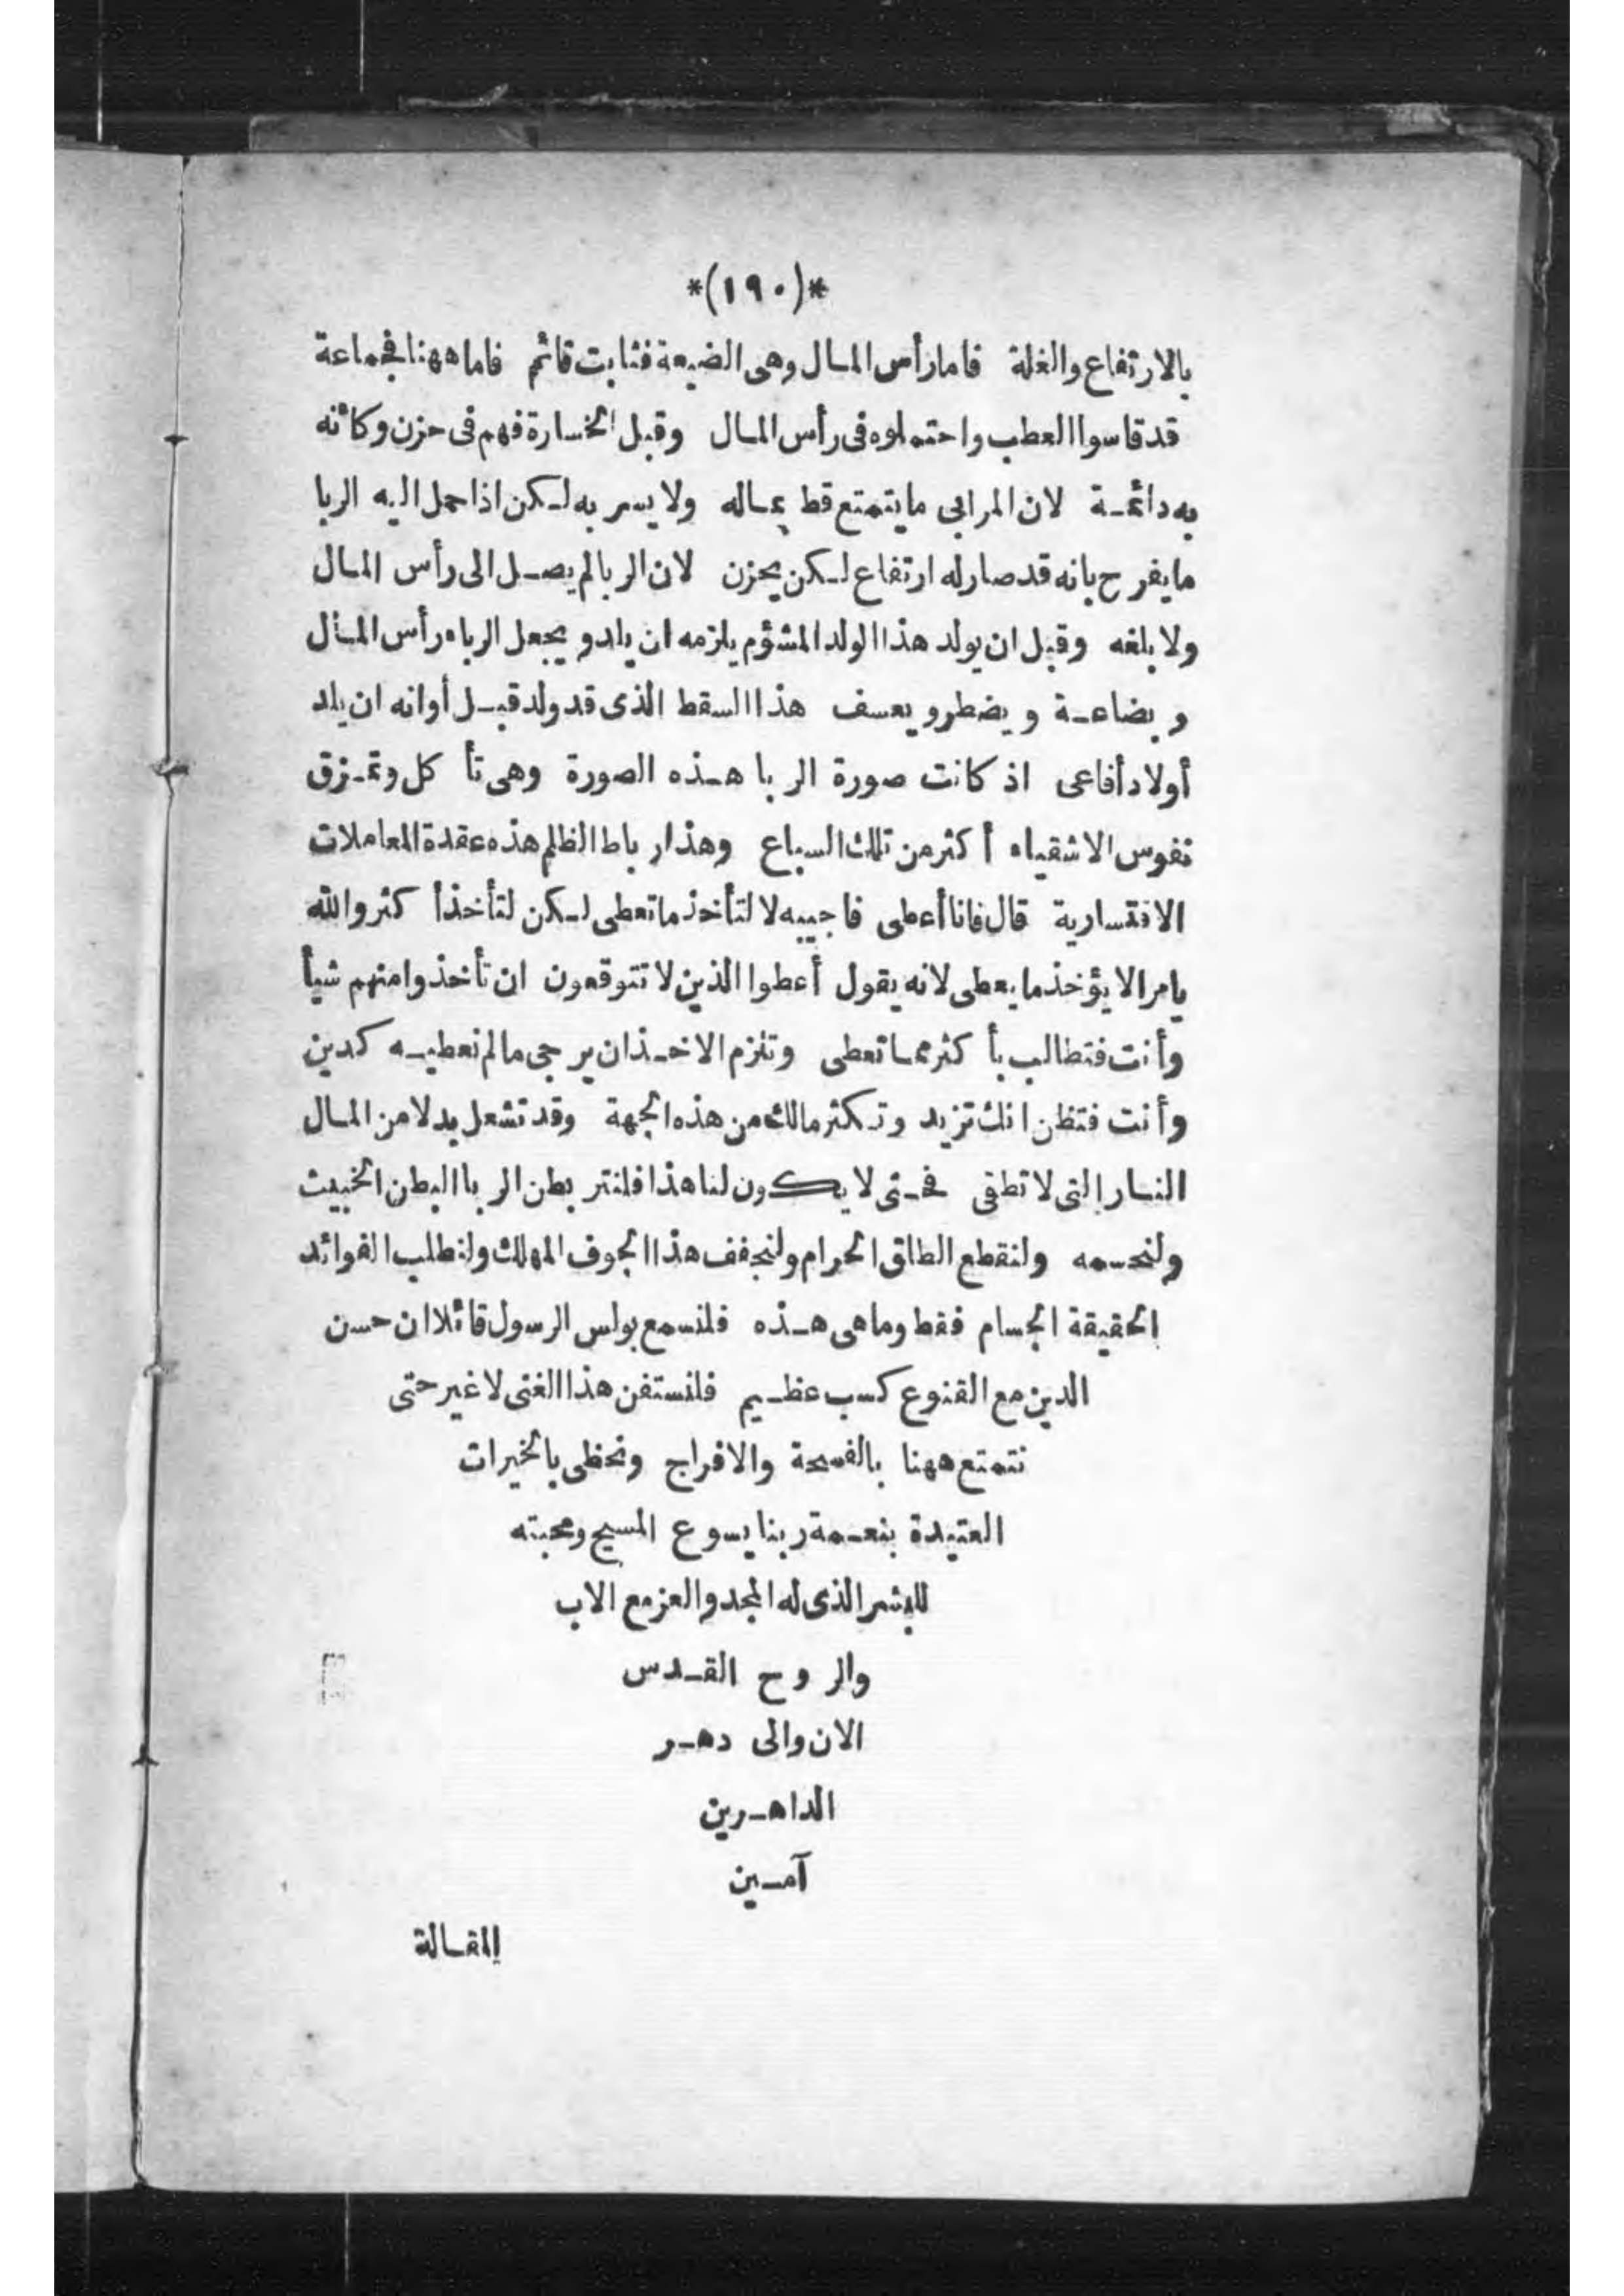 *(١٩٠)*
بالارتفاع والغلة فاما رأس المال وهى الضيعة فثابت قائم فاما ههنا فجماعة
قد قاسوا العطب واحتملوه فى رأس المال وقبل الخسارة فهم فى حزن وكأنه
به دائمة لان المرابى ما يتمتع قط بماله ولا يسر به لكن اذا حمل اليه الربا
ما يفرح بانه قد صار له ارتفاع لكن يحزن لان الربا لم يصل الى رأس المال
ولا بلغه وقبل ان يولد هذا الولد المشؤم يلزمه ان يلد و يجعل الرباه رأس المال
و بضاعة و يضطر و يعسف هذا السقط الذى قد ولد قبل أوانه ان يلد
أولاد أفاعى اذ كانت صورة الربا هذه الصورة وهى تأ كل وتمزق
نفوس الاشقياء أكثر من تلك السباع وهذا رباط الظلم هذه عقدة المعاملات
الاقتسارية قال فانا أعطى فاجيبه لا لتأخذ ما تعطى لكن لتأخذ أكثر والله
يامر الا يؤخذ ما يعطى لانه يقول أعطوا الذين لا تتوقعون ان تأخذوا منهم شيأ
وأنت فتطالب بأكثر مما تعطى وتلزم الاخذ ان يرجى ما لم نعطيه كدين
وأنت فتظن انك تزيد وتكثر مالك من هذه الجهة وقد تشعل بدلا من المال
النار التى لا تطفى فحتى لا يكون لنا هذا فلنتر بطن الربا البطن الخبيث
ولنحسمه ولنقطع الطلق الحرام ولنجفف هذا الجوف المهلك ولنطلب الفوائد
الحقيقة الجسام فقط وما هى هذه فلنسمع بولس الرسول قائلا ان حسن
الدين مع القنوع كسب عظيم فلنستفن هذا الغنى لا غير حتى
نتمتع ههنا بالفسحة والافراج ونحظى بالخيرات
العتيدة بنعمة ربنا يسوع المسيح ومحبته
للبشر الذى له المجد والعز مع الاب
والروح القدس
الان والى دهر
الداهرين
آمين
المقالة